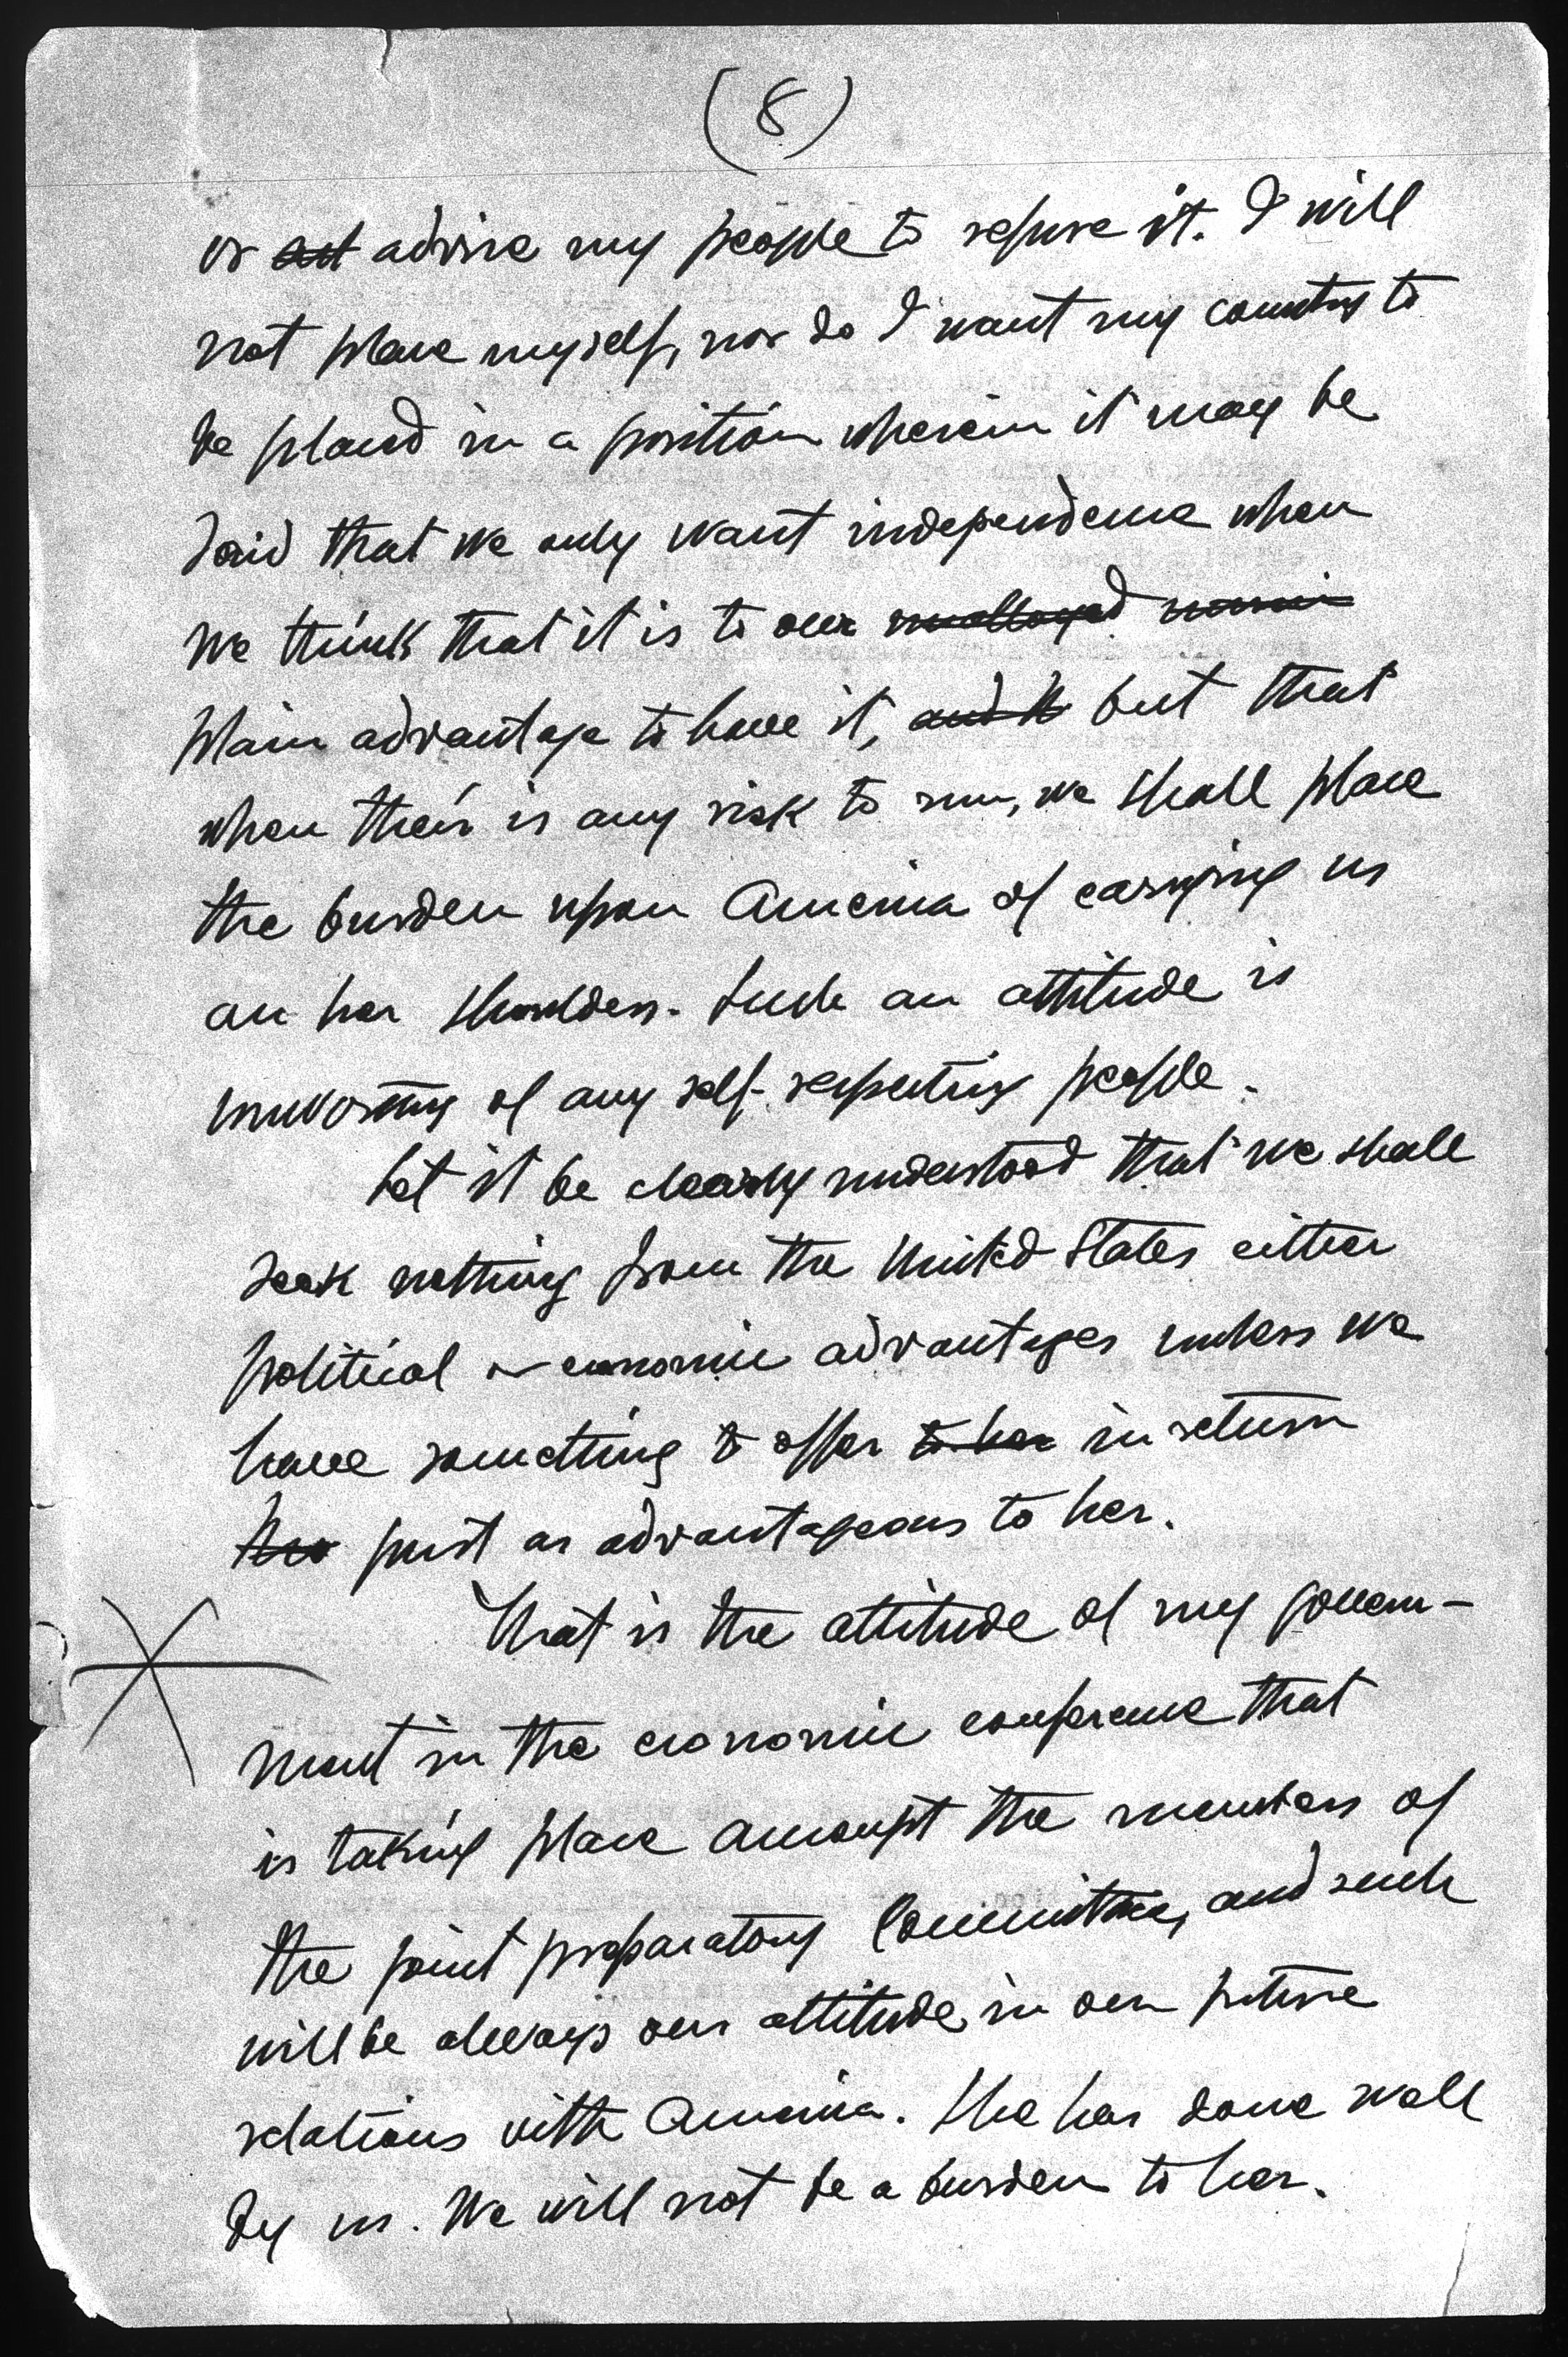 (8)
or advise my people to refuse it. I will
not place myself, nor do I want my country to
be placed in a position wherein it may be
said that we only want independence when
we think that it is to our
plain advantage to have it, but that
when their is any risk to run, we shall place
the burden upon America of carrying us
on her shoulders. Such an attitude is
unworthy of any self-respecting people.
Let it be clearly understood that we shall
seek nothing from the United States either
political or economic advantages unless we
have something to offer to her in return
just as advantageous to her.
That is the attitude of my govern-
ment in the economic conference that
is taking place amongst the members of
the joint preparatory Committee, and such
will be always our attitude in our future
relations with America. She has done well
by us. We will not be a burden to her.